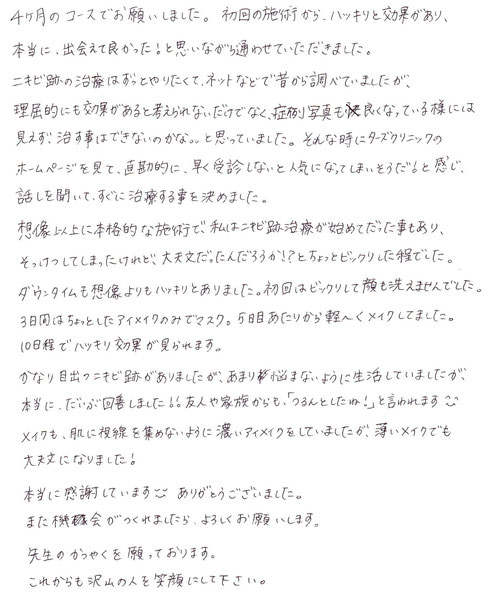 4ヶ月のコースでお願いしました。初回の施術から、ハッキリと効果があり、
本当に、出会えて良かった!と思いながら通わせていただきました。
ニキビ跡の治療はずっとやりたくて、ネットなどで昔から調べていましたが、
理屈的にも効果があると考えられないだけでなく、症例写真も良くなっている様には
見えず、治す事はできないのかな。。と思っていました。そんな時にターズクリニックの
ホームページを見て、直勘的に、早く受診しないと人気になってしまいそうだ!と感じ、
話しを聞いて、すぐに治療する事を決めました。
想像以上に本格的な施術で、私はニキビ跡治療が始めてだった事もあり、
そっけつしてしまったけれど、大丈夫だったんだろうか!?とちょっとビックリした程でした。
ダウンタイムも想像よりもハッキリとありました。初回はビックリして顔も洗えませんでした。
3日間はちょっとしたアイメイクのみでマスク。5日目あたりから軽〜くメイクしてました。
10日程でハッキリ効果が見られます。
かなり目出つニキビ跡がありましたが、あまり悩まないように生活していましたが、
本当に、だいぶ回善しました!!友人や家族からも、「つるんとしたね!」と言われます
メイクも、肌に視線を集めないように濃いアイメイクをしていましたが、薄いメイクでも
大丈夫になりました!
本当に感謝しています ありがとうございました。
また機会がつくれましたら、よろしくお願いします。
先生のかつやくを願っております。
これからも沢山の人を笑顔にして下さい。